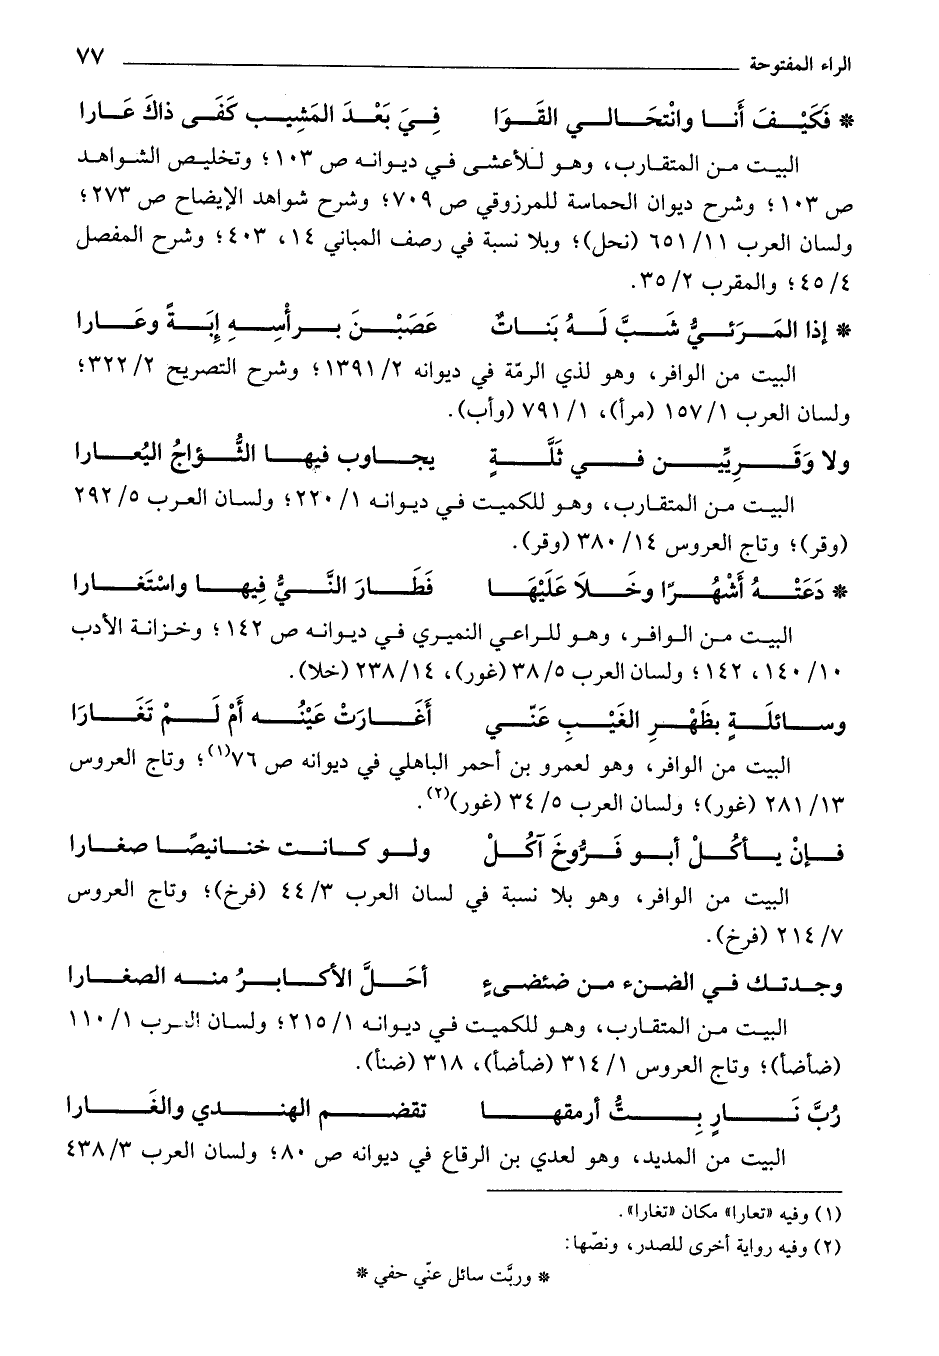 الراء المفتوحة ٧٧
* فَكَيْفَ أَنا وانْتحَالي القَوَا فِيَ بَعْدَ المَشِيب كَفَى ذاكَ عَارا
البيت من المتقارب، وهو للأعشى في ديوانه ص ١٠٣؛ وتخليص الشواهد
ص ١٠٣؛ وشرح ديوان الحماسة للمرزوقي ص ٧٠٩؛ وشرح شواهد الإيضاح ص ٢٧٣؛
ولسان العرب ١١/ ٦٥١ (نحل)؛ وبلا نسبة في رصف المباني ١٤، ٤٠٣؛ وشرح المفصل
٤/ ٤٥؛ والمقرب ٢/ ٣٥.
* إذا المَرَئيُّ شَبَّ لَهُ بَنَاتٌ عَصَبْنَ بِرأْسِهِ إبَةً وعَارا
البيت من الوافر، وهو لذي الرمّة في ديوانه ٢/ ١٣٩١؛ وشرح التصريح ٢/ ٣٢٢؛
ولسان العرب ١/ ١٥٧ (مرأ)، ١/ ٧٩١ (وأب).
ولا وَقَرِيِّين في ثَلَّةٍ يجاوب فيها الثُّؤاجُ اليُعارا
البيت من المتقارب، وهو للكميت في ديوانه ١/ ٢٢٠؛ ولسان العرب ٥/ ٢٩٢
(وقر)؛ وتاج العروس ١٤/ ٣٨٠ (وقر).
* دَعَتْهُ أَشْهُرًا وخَلاَ عَلَيْهَا فَطَارَ النَّيُّ فِيها واسْتَغَارا
البيت من الوافر، وهو للراعي النميري في ديوانه ص ١٤٢؛ وخزانة الأدب
١٠/ ١٤٠، ١٤٢؛ ولسان العرب ٥/ ٣٨ (غور)، ١٤/ ٢٣٨ (خلا).
وسائلَةٍ بظَهْرِ الغَيْبِ عَنِّي أَغَارَتْ عَيْنُه أمْ لَمْ تَغَارَا
البيت من الوافر، وهو لعمرو بن أحمر الباهلي في ديوانه ص ٧٦(١)؛ وتاج العروس
١٣/ ٢٨١ (غور)؛ ولسان العرب ٥/ ٣٤ (غور)(٢).
فإنْ يأكُلْ أبو فَرُّوخَ آكُلْ ولو كانت خنانيصًا صغارا
البيت من الوافر، وهو بلا نسبة في لسان العرب ٣/ ٤٤ (فرخ)؛ وتاج العروس
٧/ ٢١٤ (فرخ).
وجدتك في الضنء من ضئضىءٍ أحَلَّ الأكابرُ منه الصغارا
البيت من المتقارب، وهو للكميت في ديوانه ١/ ٢١٥؛ ولسان العرب ١/ ١١٠
(ضأضأ)؛ وتاج العروس ١/ ٣١٤ (ضأضأ)، ٣١٨ (ضنأ).
رُبَّ نَارٍ بِتُّ أرمقها تقضم الهندي والغَارا
البيت من المديد، وهو لعدي بن الرقاع في ديوانه ص ٨٠؛ ولسان العرب ٣/ ٤٣٨
(١) وفيه «تعارا» مكان «تغارا».
(٢) وفيه رواية أخرى للصدر، ونصّها:
* وربَّت سائل عنّي حفي *